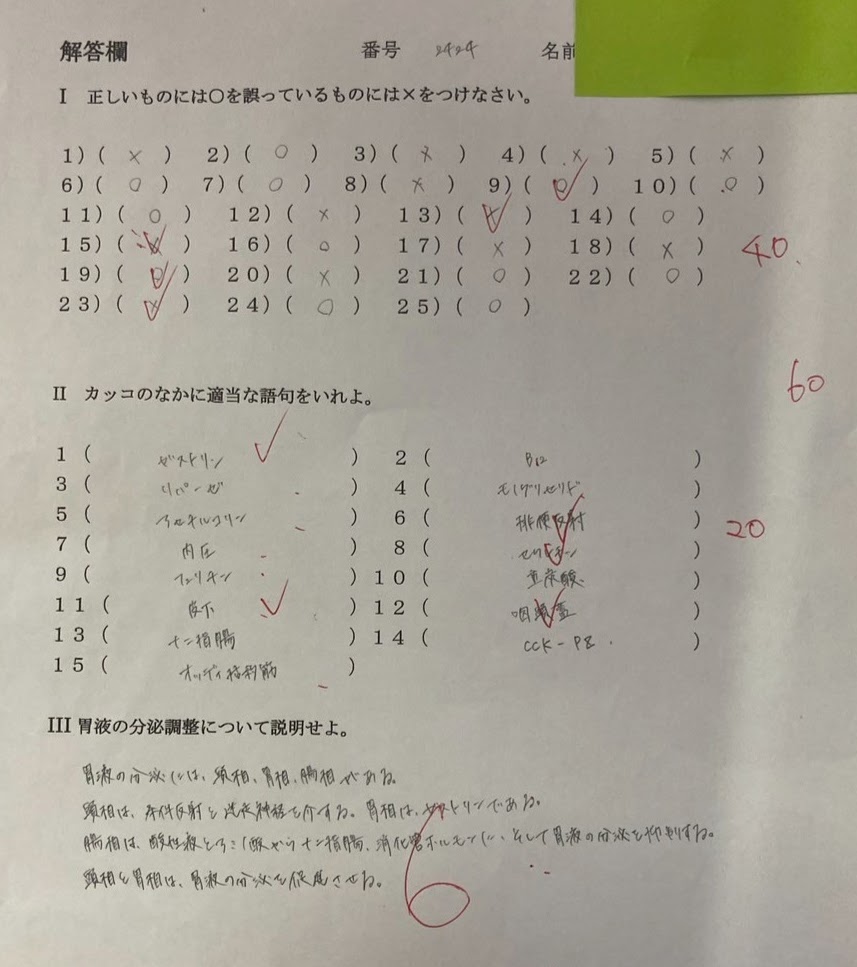 解答欄 番号 2424 名前
I 正しいものには〇を誤っているものには×をつけなさい。
1)( × ) 2)( ○ ) 3)( × ) 4)( × ) 5)( × )
6)( ○ ) 7)( ○ ) 8)( × ) 9)( ○ ) 10)( ○ )
11)( ○ ) 12)( × ) 13)( × ) 14)( ○ )
15)( × ) 16)( ○ ) 17)( × ) 18)( × ) 40
19)( ○ ) 20)( × ) 21)( ○ ) 22)( ○ )
23)( × ) 24)( ○ ) 25)( ○ )
60
II カッコのなかに適当な語句をいれよ。
1( ガストリン ) 2( B12 )
3( リパーゼ ) 4( モノグリセリド )
5( アセチルコリン ) 6( 排便反射 ) 20
7( 内圧 ) 8( セクレチン )
9( フェリチン ) 10( 重炭酸 )
11( 皮下 ) 12( 咽頭蓋 )
13( 十二指腸 ) 14( CCK-PZ )
15( オッディ括約筋 )
III 胃液の分泌調整について説明せよ。
胃液の分泌には、頭相、胃相、腸相がある。
頭相は、条件反射と迷走神経を介する。胃相は、ガストリンである。
腸相は、酸性液 十二指腸、消化管ホルモン 、そして胃液の分泌を抑制する。
頭相と胃相は、胃液の分泌を促進させる。
6